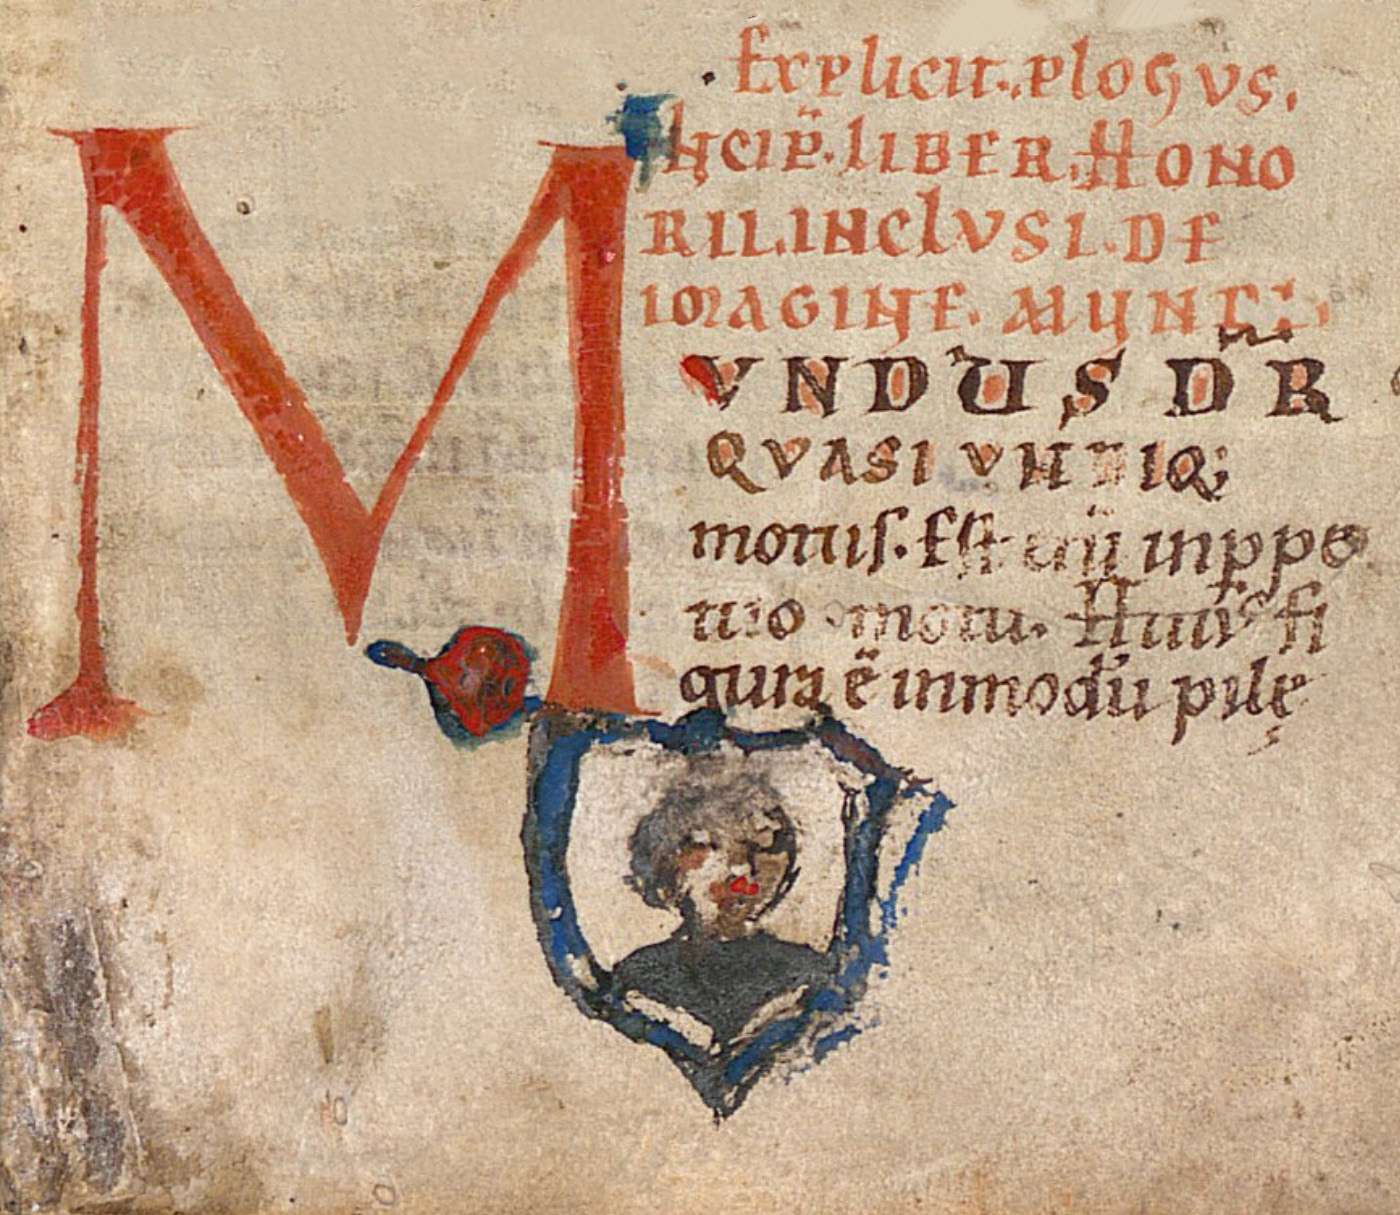 Explicit. plogus.
Incip̄. LIBER HONO
RII. INCLVSI. DE
IMAGINE. MUNDI.
M
VNDUS DR̄
QVASI VNDIQ;
motus. Est eni inppe
tuo motu. Hui⁹ fi
gura ē inmodū pilę